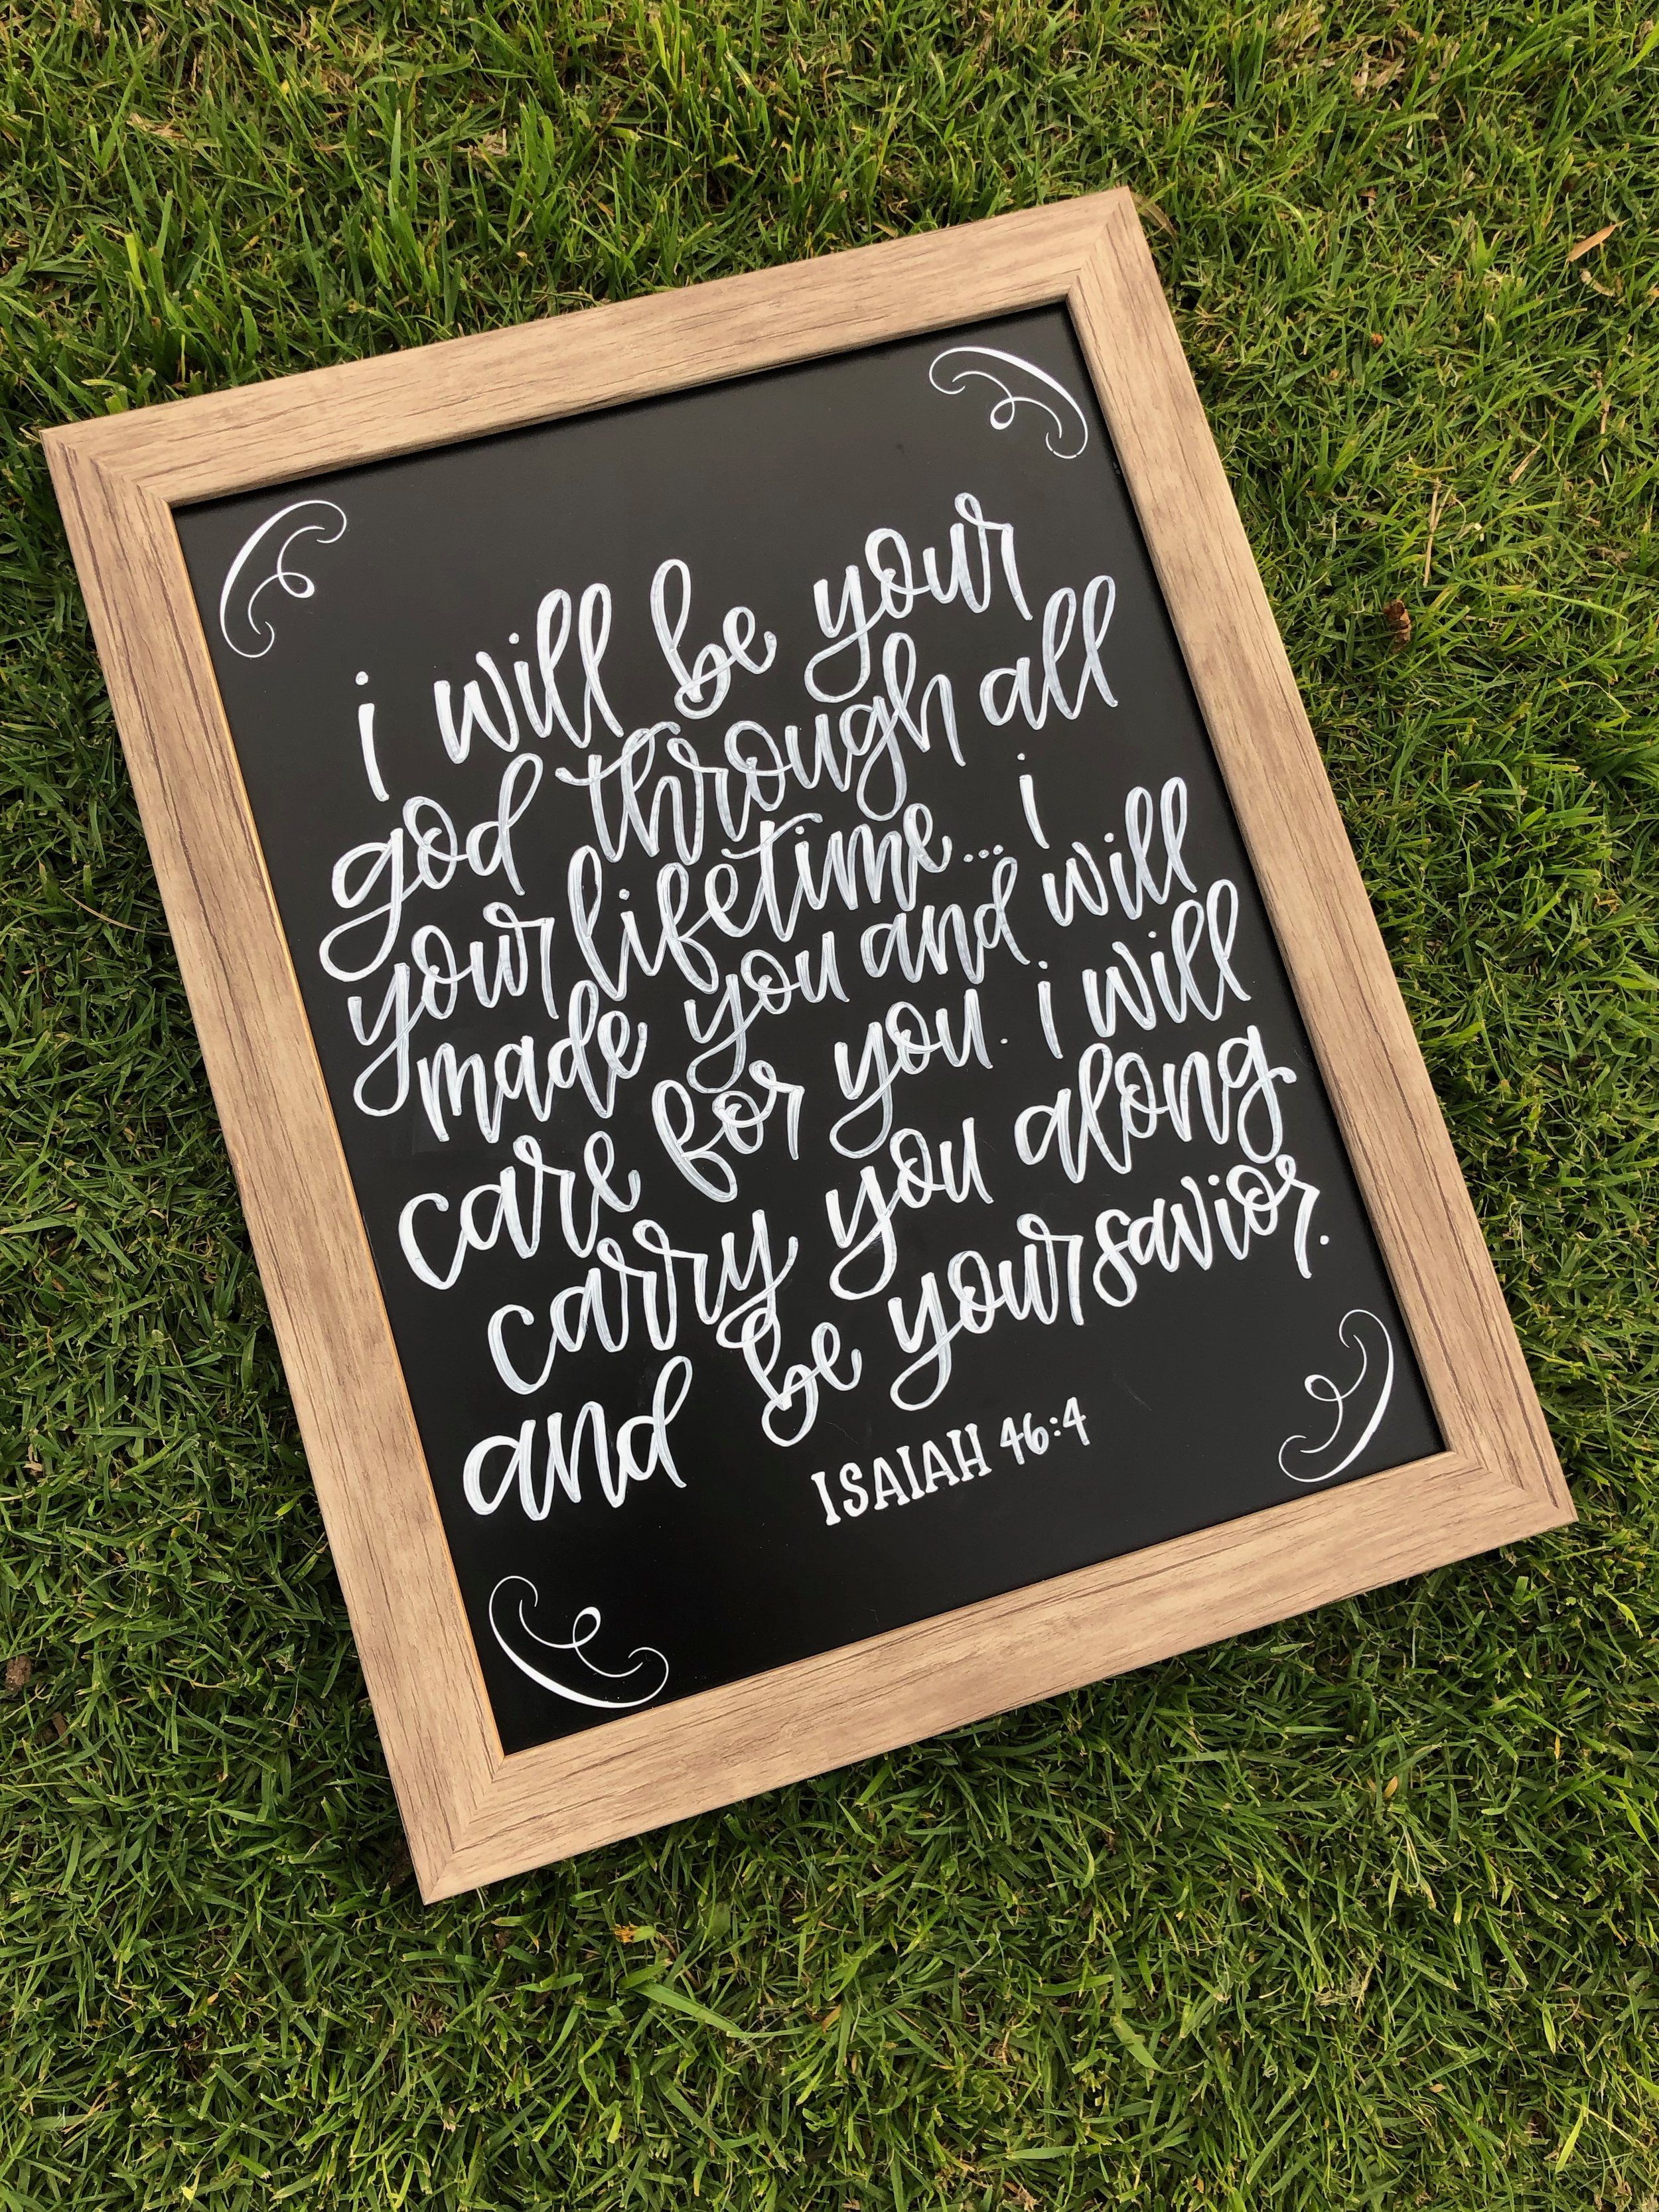 i will be your
god through all
your lifetime... i
made you and will
care for you. i will
carry you along
and be your savior.
ISAIAH 46:4